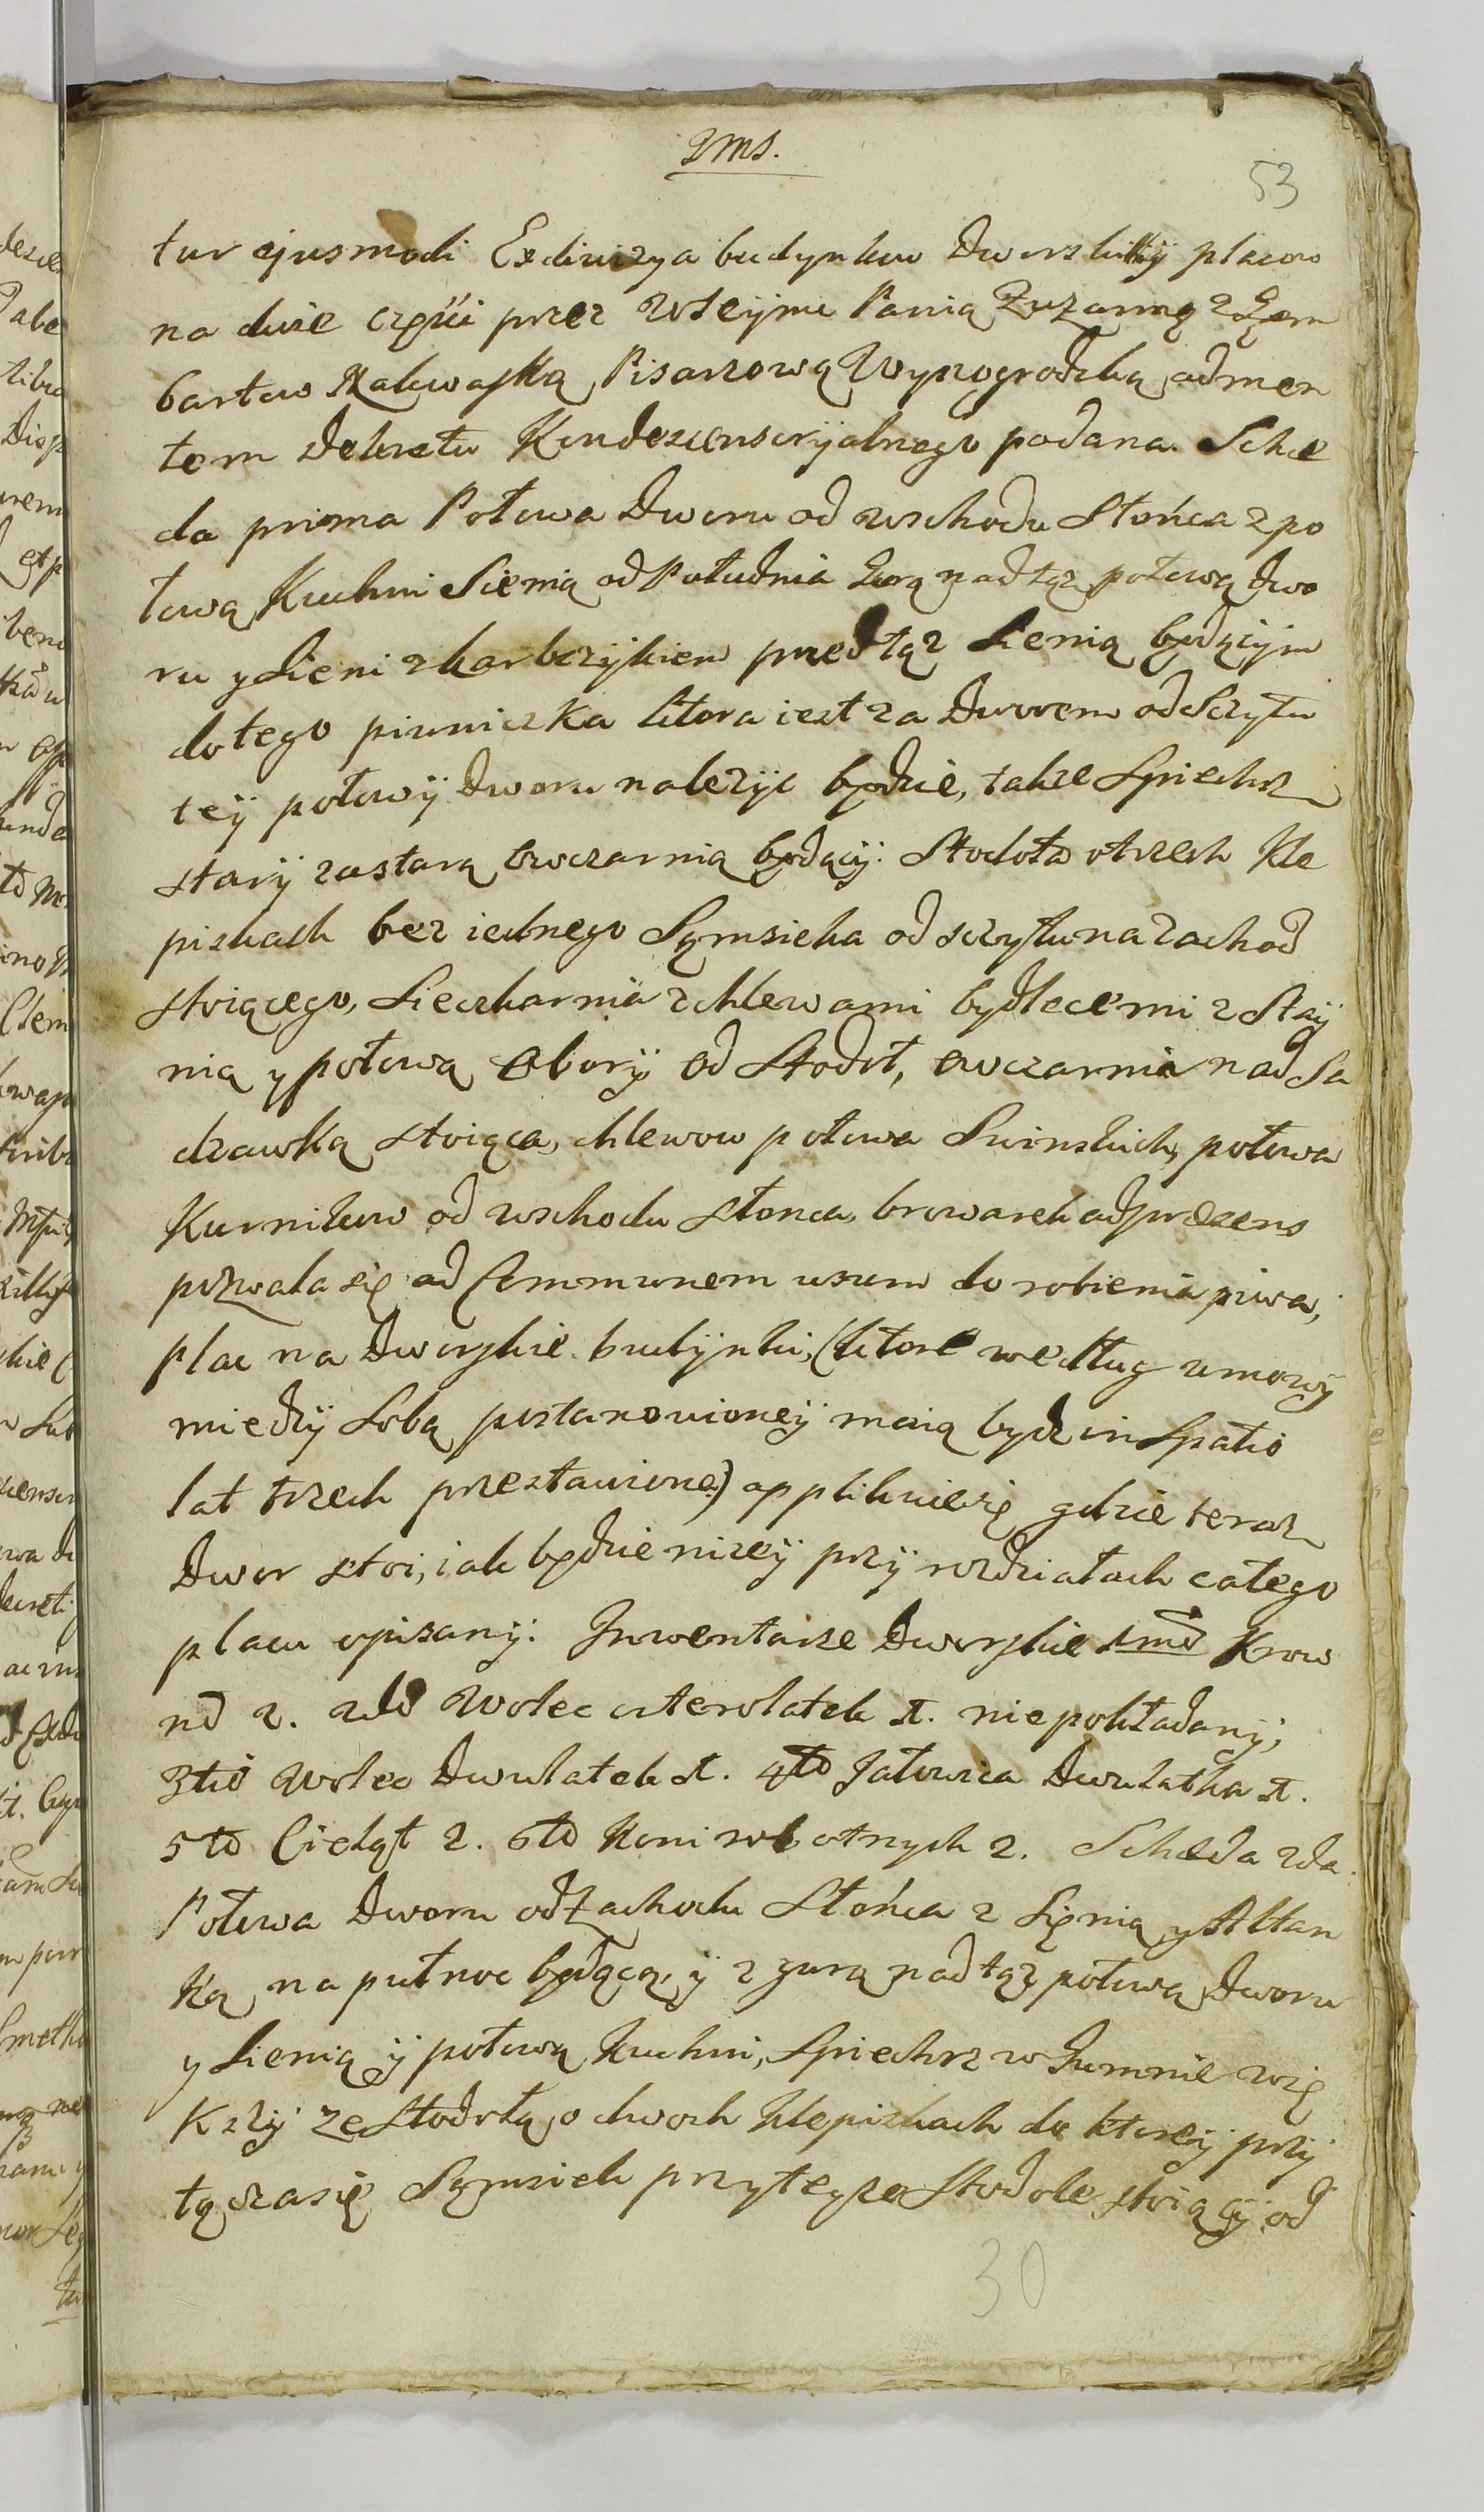 53
tur ejusmodi Exdiwizya budynkow Dworskich y placow
na dwie częsci przez WJeymę Panią Zuzannę z Gem
bartow Pisarzową Wyszogrodzką ad men
tem Dekretu Kondescensoryalnego podana. Sche
da prima Połowa Dworu od wschodu Słońca z po
łową Kuchni Sienią od Południa Gorą nad tąz połową dwo
ru y Sieni z karbczykiem przed tąz Sienią będącym
do tego piwniczka ktora iest za Dworem od Sczytu
teÿ połowÿ Dworu nalezÿc będzie, takze Spiechrz
starÿ za starą owczarnią będącÿ. Stodoła o trzech Kle
piskach bez iednego Sąmsieka od sczytu na zachod
stoiącego, Sieczkarnia z chlewami bydlęcemi z Staÿ
nią y połową Oborÿ od Stodoł, owczarnia nad Sa
dzawką stoiąca, chlewow połowa Swinskich, połowa
Kurnikow od wschodu słonca, browarek ad praesens
pozwala się ad Communem usum do robienia piwa,
plac na Dworskie budÿnki, (ktore według umowÿ
miedzÿ Sobą postanowioneÿ maią bydz in Spatio
lat trzech przestawione) applikuie się gdzie teraz
Dwor stoi, iak będzie nizeÿ przÿ rozdziałach całego
placu opisanÿ. Inwentarze Dworskie 1mo Krow
no 2. 2do Wolec czterolatek 1. niepokładanÿ,
3tio Wolec Dwulatek 1. 4to Jałowica Dwulatka 1.
5to Cieląt 2. 6to Koni robotnych 2. Scheda 2da.
Połowa Dworu od Zachodu Słońca z Sięnią y Altan
ką na pułnoc będącą, ÿ z gurą nad tąz połową Dworu
y Sienią ÿ połową Kuchni, Spiechrz w Gumnie wię
kszÿ ze Stodołą o dwoch Klepiskach do ktoreÿ przÿ
łącza się Sąmsiek przy teyze Stodole stoiącÿ od
30